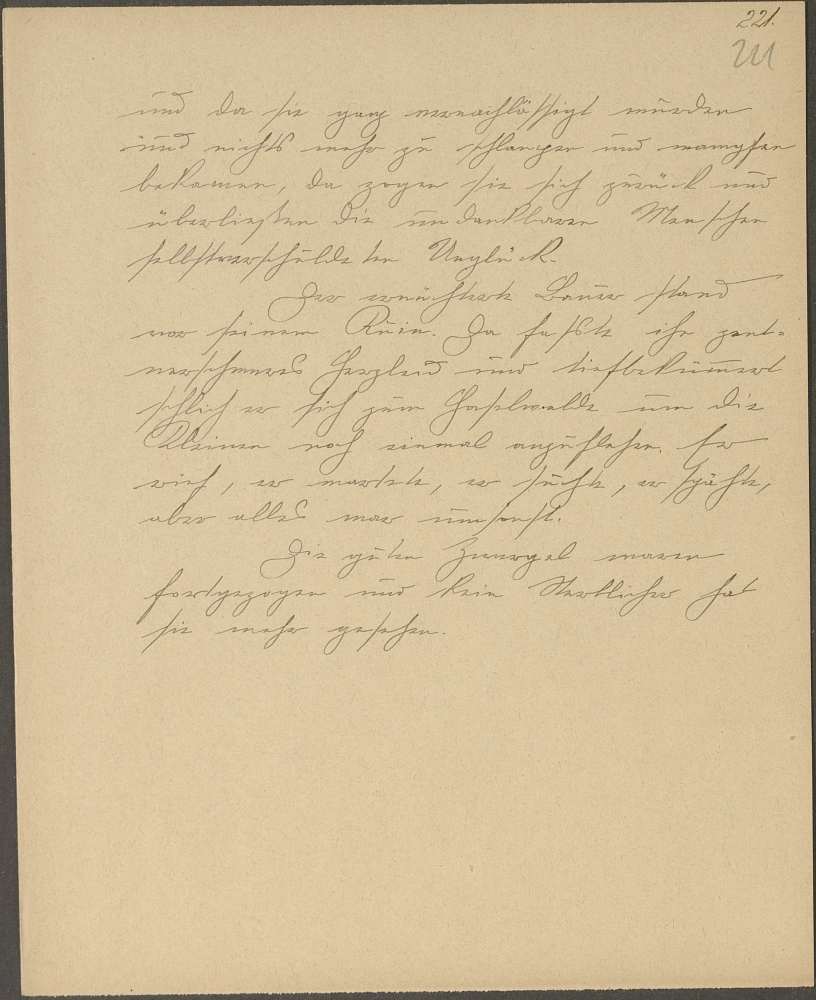 221.
211
und da sie ganz vernachlässigt wurden
und nichts mehr zu schlampen und mampfen
bekamen, da zogen sie sich zurück und
überließen die undankbaren Menschen
selbstverschuldeten Unglück.
Der ernüchterte Bauer stand
vor seinem Ruin. Da faßte ihn zent-
nerschweres Herzleid und tiefbekümmert
schlich er sich zum Haselwalde um die
Kleinen noch einmal anzuflehen. Er
rief, er wartete, er suchte, er spähte,
aber alles war umsonst.
Die guten Zwergel waren
fortgezogen und kein Sterblicher hat
sie mehr gesehen.